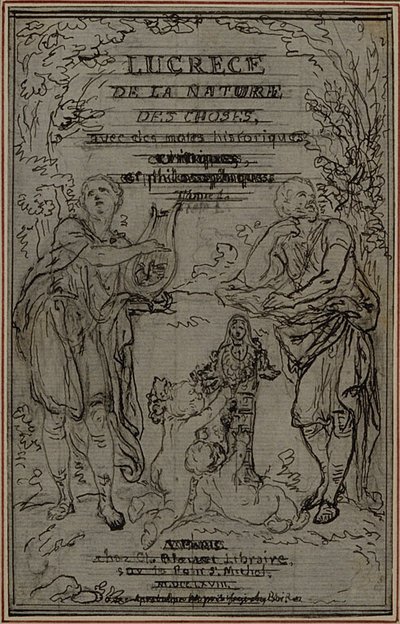 LUCRECE
DE LA NATURE
DES CHOSES,
avec des notes historiques
critiques,
et philosophiques.
Tome I.
A PARIS
chez Cl. Bleuet Libraire,
sur le Pont S. Michel.
M.DCC.LXVIII.